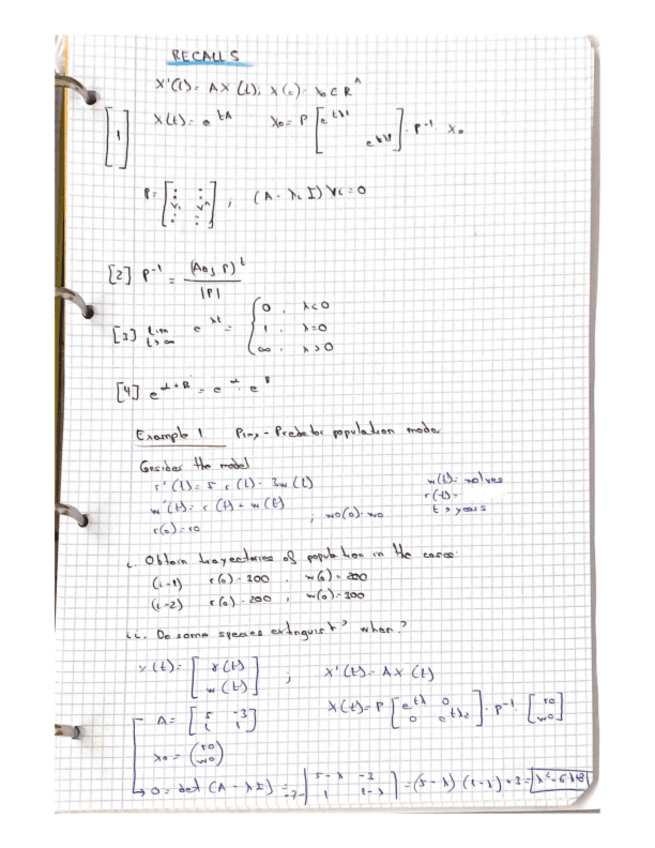 RECALLS
X'(t) = AX(t); X(0) = x0 ∈ R^n
[1] X(t) = e^{tA} X0 = P [e^{tλ1} e^{tλn}] · P^-1 X0
P = [v1 vn], (A - λi I) Vi = 0
[2] P^-1 = (Adj P)^t / |P|
[3] lim t→∞ e^{λt} = { 0, λ<0
1, λ=0
∞, λ>0
[4] e^{α+β} = e^α · e^β
Example 1 Prey - Predator population mode
Consider the model
r'(t) = 5r(t) - 3w(t) w(t) = wolves
w'(t) = r(t) + w(t) r(t) =
r(0) = r0 ; w0(0) = w0 t → years
i. Obtain trayectories of population in the cases:
(i-1) r(0) = 300, w(0) = 200
(i-2) r(0) = 200, w(0) = 300
ii. Do some species extinguish? when?
x(t) = [r(t) w(t)] ; X'(t) = AX(t)
A = [5 -3 1 1] X(t) = P [e^{tλ} 0 0 e^{tλ2}] · P^-1 · [r0 w0]
x0 = (r0 w0)
0 = det (A - λI) = |5-λ -3 1 1-λ| = (5-λ)(1-λ)+3 = λ²-6λ+8